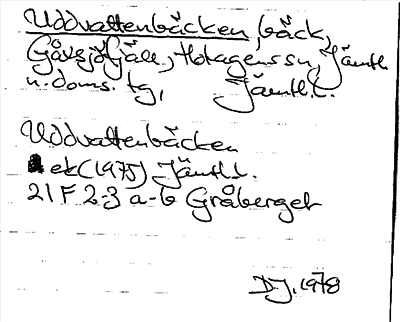 Uddvattenbäcken, bäck,
Gåxsjöfjäll, Hotagens sn, Jämtl.
n. doms. tg, Jämtl. l.
Uddvattenbäcken
ek (1975) Jämtl. l.
21 F 2-3 a-b Gråberget
DJ, 1978